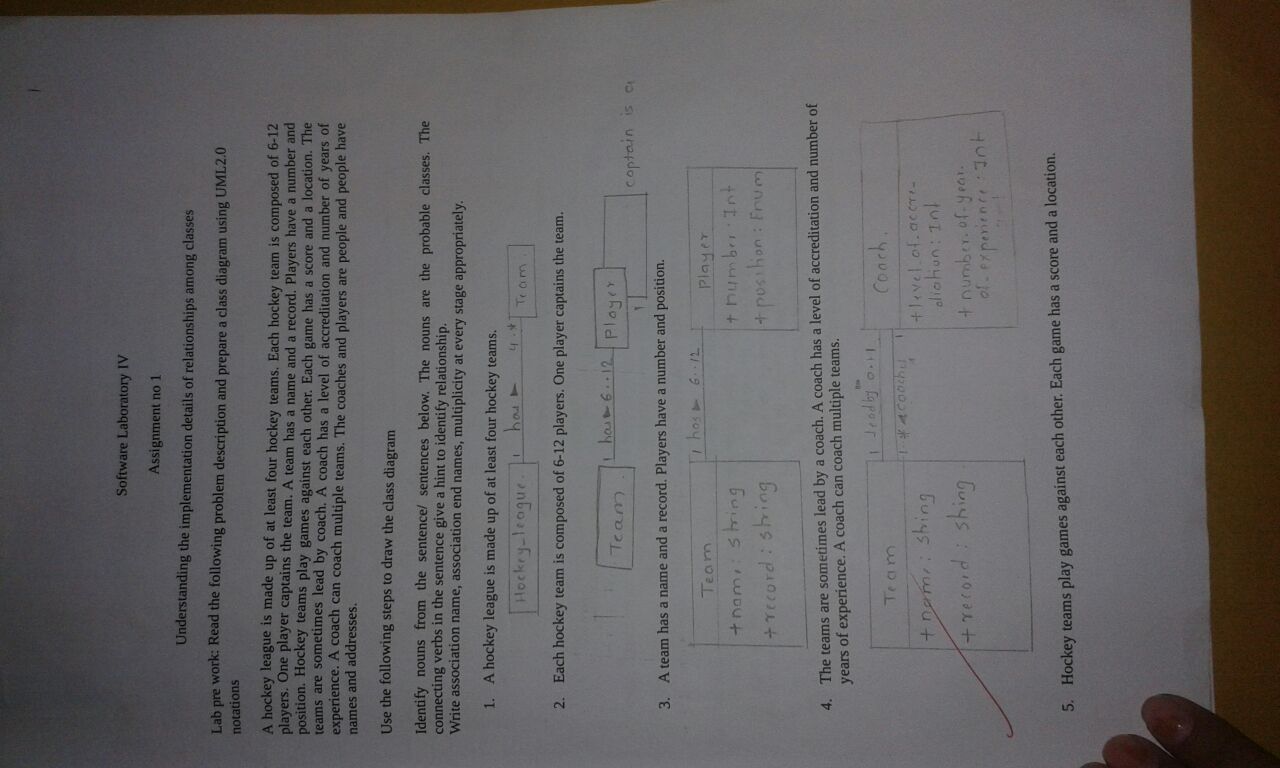 Software Laboratory IV
Assignment no 1
Understanding the implementation details of relationships among classes
Lab pre work: Read the following problem description and prepare a class diagram using UML2.0
notations
A hockey league is made up of at least four hockey teams. Each hockey team is composed of 6-12
players. One player captains the team. A team has a name and a record. Players have a number and
position. Hockey teams play games against each other. Each game has a score and a location. The
teams are sometimes lead by coach. A coach has a level of accreditation and number of years of
experience. A coach can coach multiple teams. The coaches and players are people and people have
names and addresses.
Use the following steps to draw the class diagram
Identify nouns from the sentence/ sentences below. The nouns are the probable classes. The
connecting verbs in the sentence give a hint to identify relationship.
Write association name, association end names, multiplicity at every stage appropriately.
1. A hockey league is made up of at least four hockey teams.
Hockey_league. 1 has ► 4..* Team.
2. Each hockey team is composed of 6-12 players. One player captains the team.
Team. 1 has ► 6..12 Player
1 captain is a
3. A team has a name and a record. Players have a number and position.
Team 1 has ► 6..12 Player
+ name: string + number: Int
+ record: string + position: Enum
4. The teams are sometimes lead by a coach. A coach has a level of accreditation and number of
years of experience. A coach can coach multiple teams.
Team 1 leadby 0..1 Coach.
1..* 1
+ name: string + level_of_accre-
ditation: Int
+ record: string + number_of_year_
of_experience: Int
5. Hockey teams play games against each other. Each game has a score and a location.